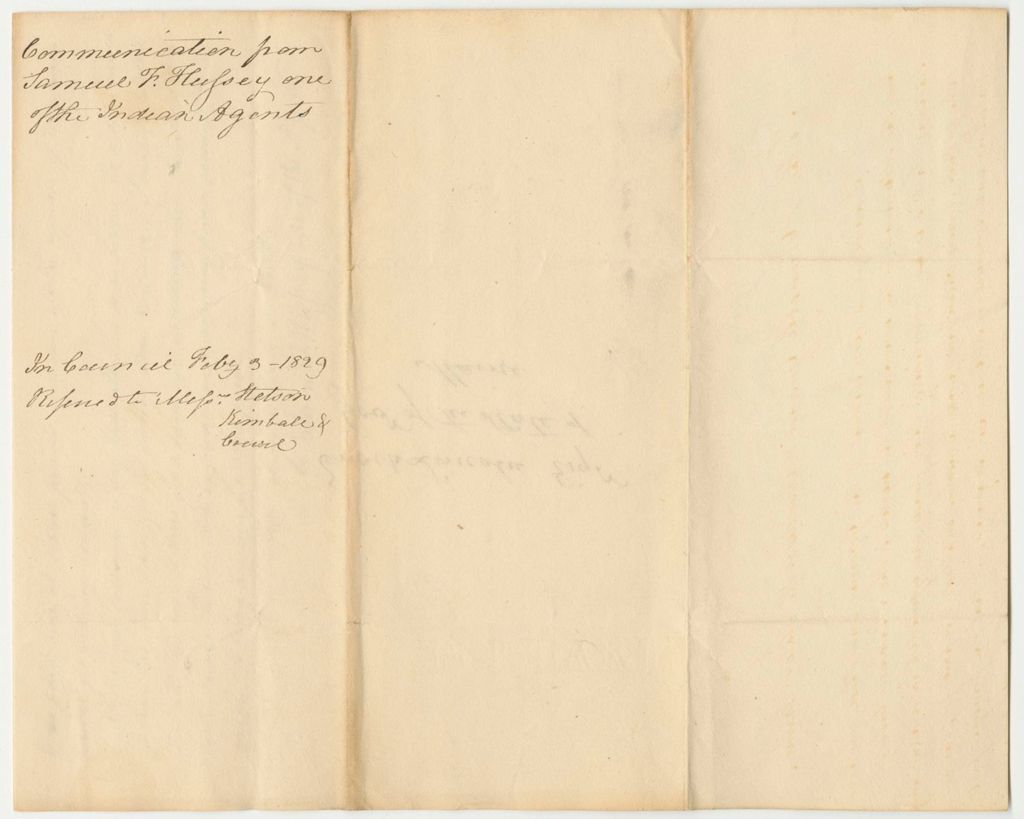 Communication from
Samuel F. Hussey one
of the Indian Agents
In Council Feby 3 - 1829
Referred to Messrs Stetson
Kimball &